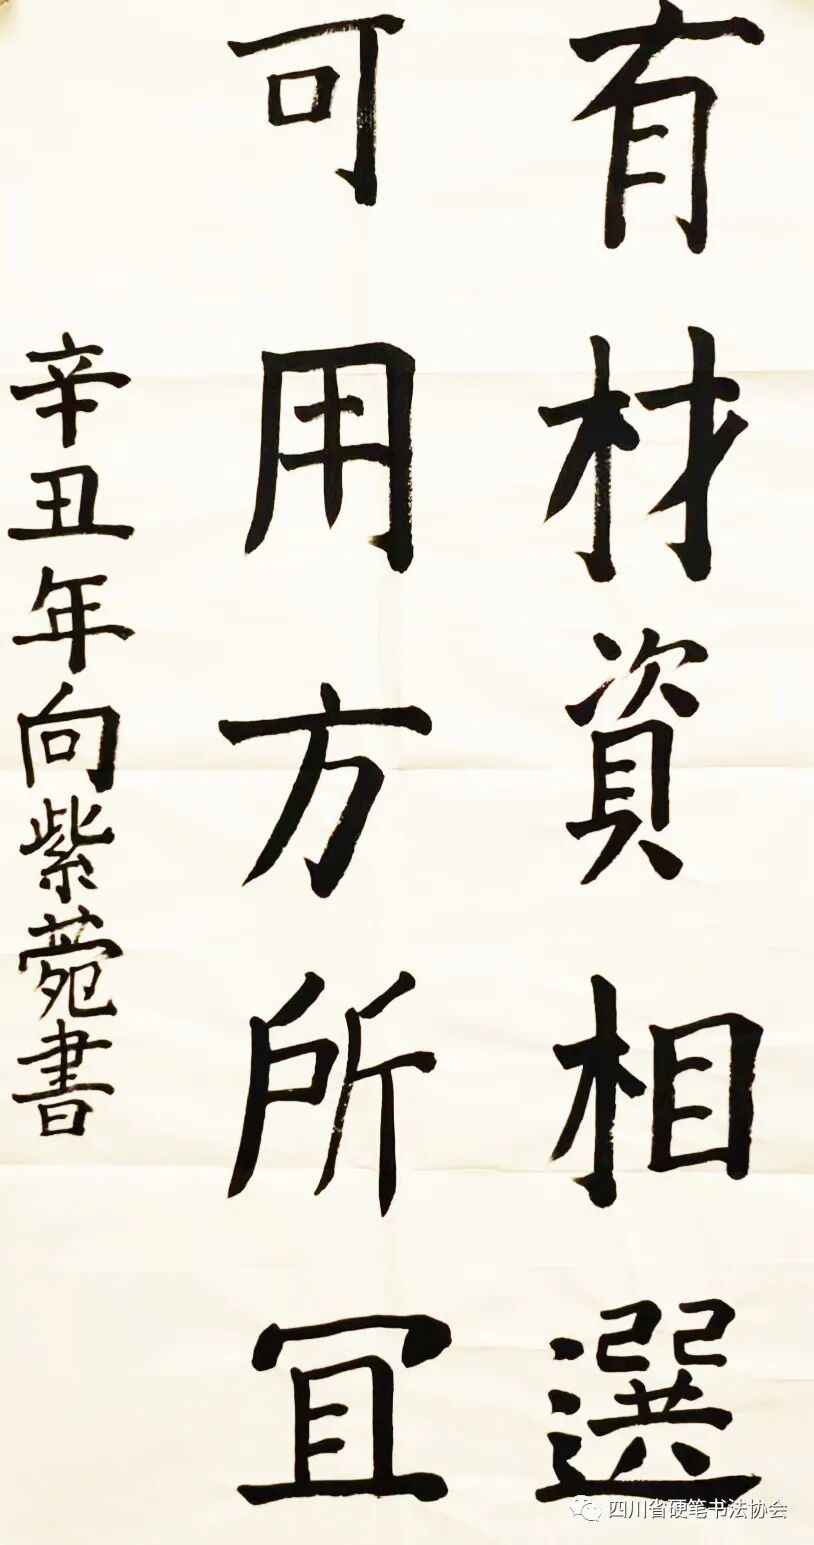 有材資相選
可用方所冝
辛丑年向紫菀書
四川省硬笔书法协会